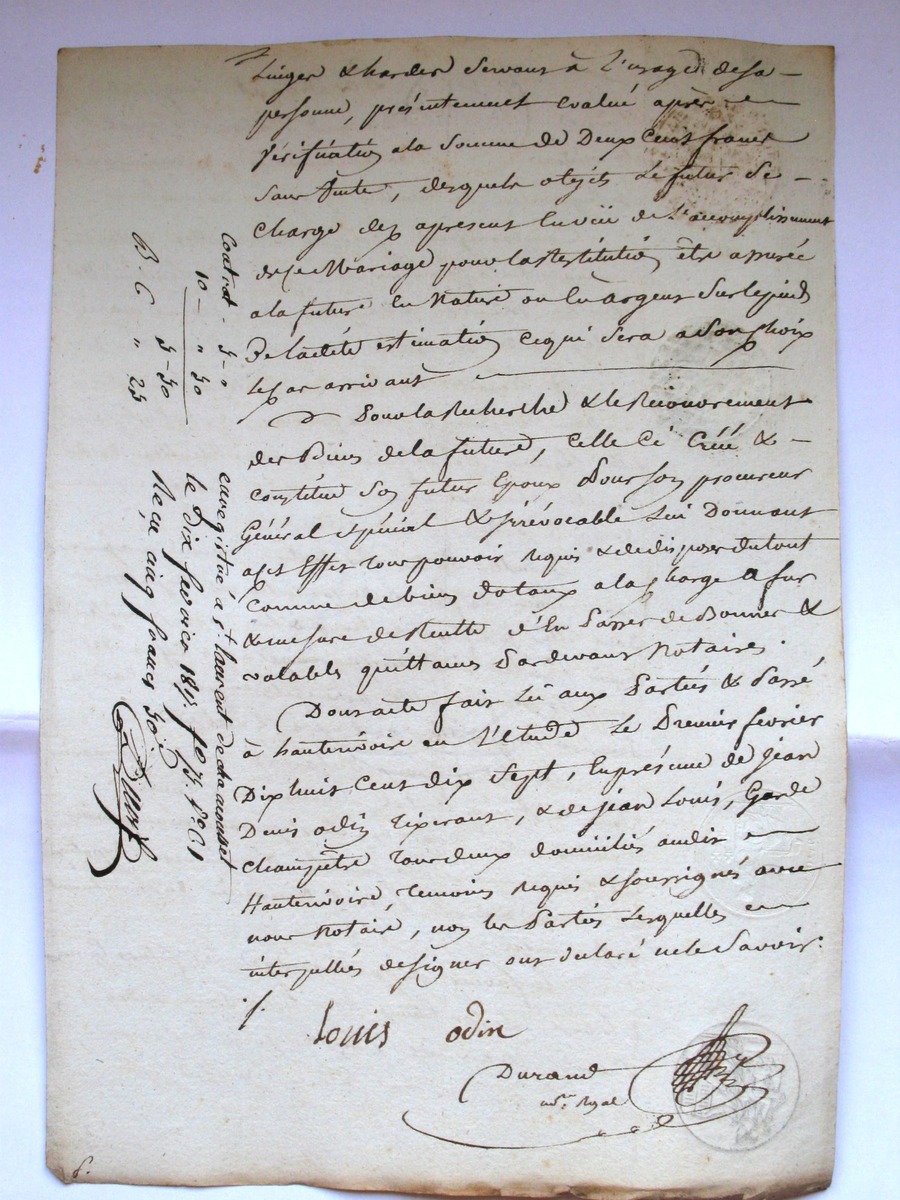 Linges & hardes Servans à l'usage de Sa –
personne, présentement evalué après
Vérification a la Somme de Deux Cents francs
Sans Suite, desquels objets Le futur Se –
Charge dez apresent En vüe de l'accomplissement
de ce Mariage pour la Restitution être assurée
a la future En Nature ou En argent Sur le pied
De la dite estimation ce qui Sera a Son choix
le cas arrivant
Pour la Recherche & le Recouvrement
des Biens de la future, Celle Ci Créé & –
constitue Son futur Epoux Pour Son procureur
Général spécial & irrévocable Lui Donnant
a cet Effet tous pouvoirs requis & de disposer du tout
Comme de biens dotaux a la charge a fur
& mesure de Recette d'En Passer de Bonnes &
valables quittances Pardevant Notaires.
Dont acte fait Lû aux Parties & Passé
à hauterivoire en l'Etude Le Premier fevrier
Dix huit Cent dix Sept, En présence de jean
Denis odin tixerant, & de jean Louis, Garde
Champêtre tous deux domiciliés audit
Hauterivoire, temoins requis & soussignés avec
nous Notaire, non les Parties Lesquelles
interpellées de signer ont declaré ne le Savoir.
/.
Louis odin
Durand
not.re Royal
Contrat - 5 - "
10 - " 50
5 - 50
B. C " 25
enregistré à st. laurent de chamousset
le dix fevrier 1817. fo 71. Vo C. 1
Reçu cinq francs 50 c
6.